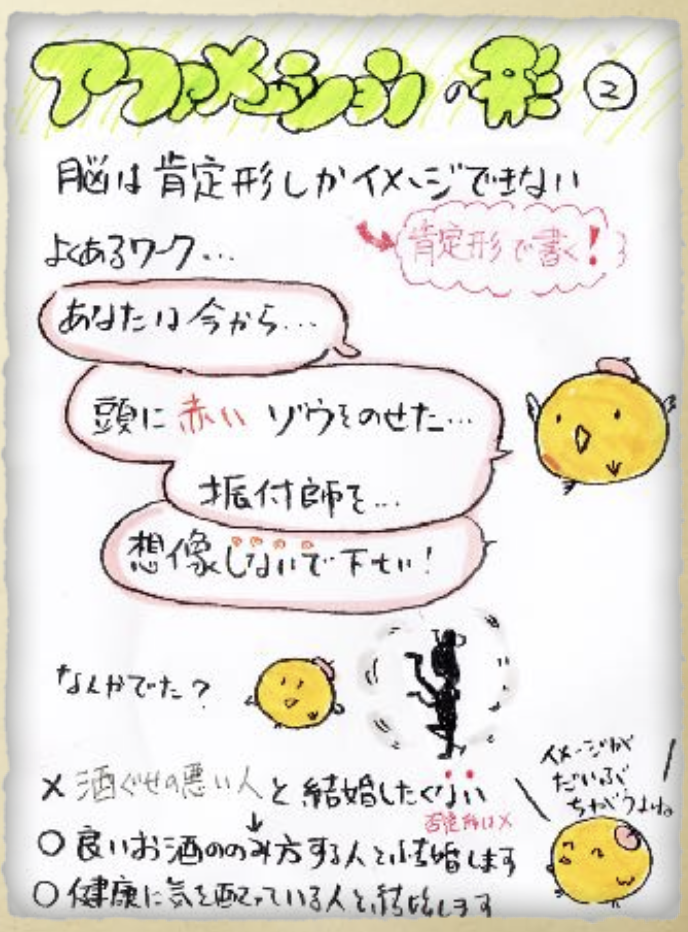 アファメーションの形②
脳は肯定形しかイメージできない
よくあるワーク…
肯定形で書く!
あなたは今から…
頭に赤いゾウをのせた…
振付師を…
想像しないで下さい!
なんかでた?
イメージが
だいぶ
ちがうよね
×酒ぐせの悪い人と結婚したくない
否定形は×
○良いお酒ののみ方する人と結婚します
○健康に気を配っている人と結婚します